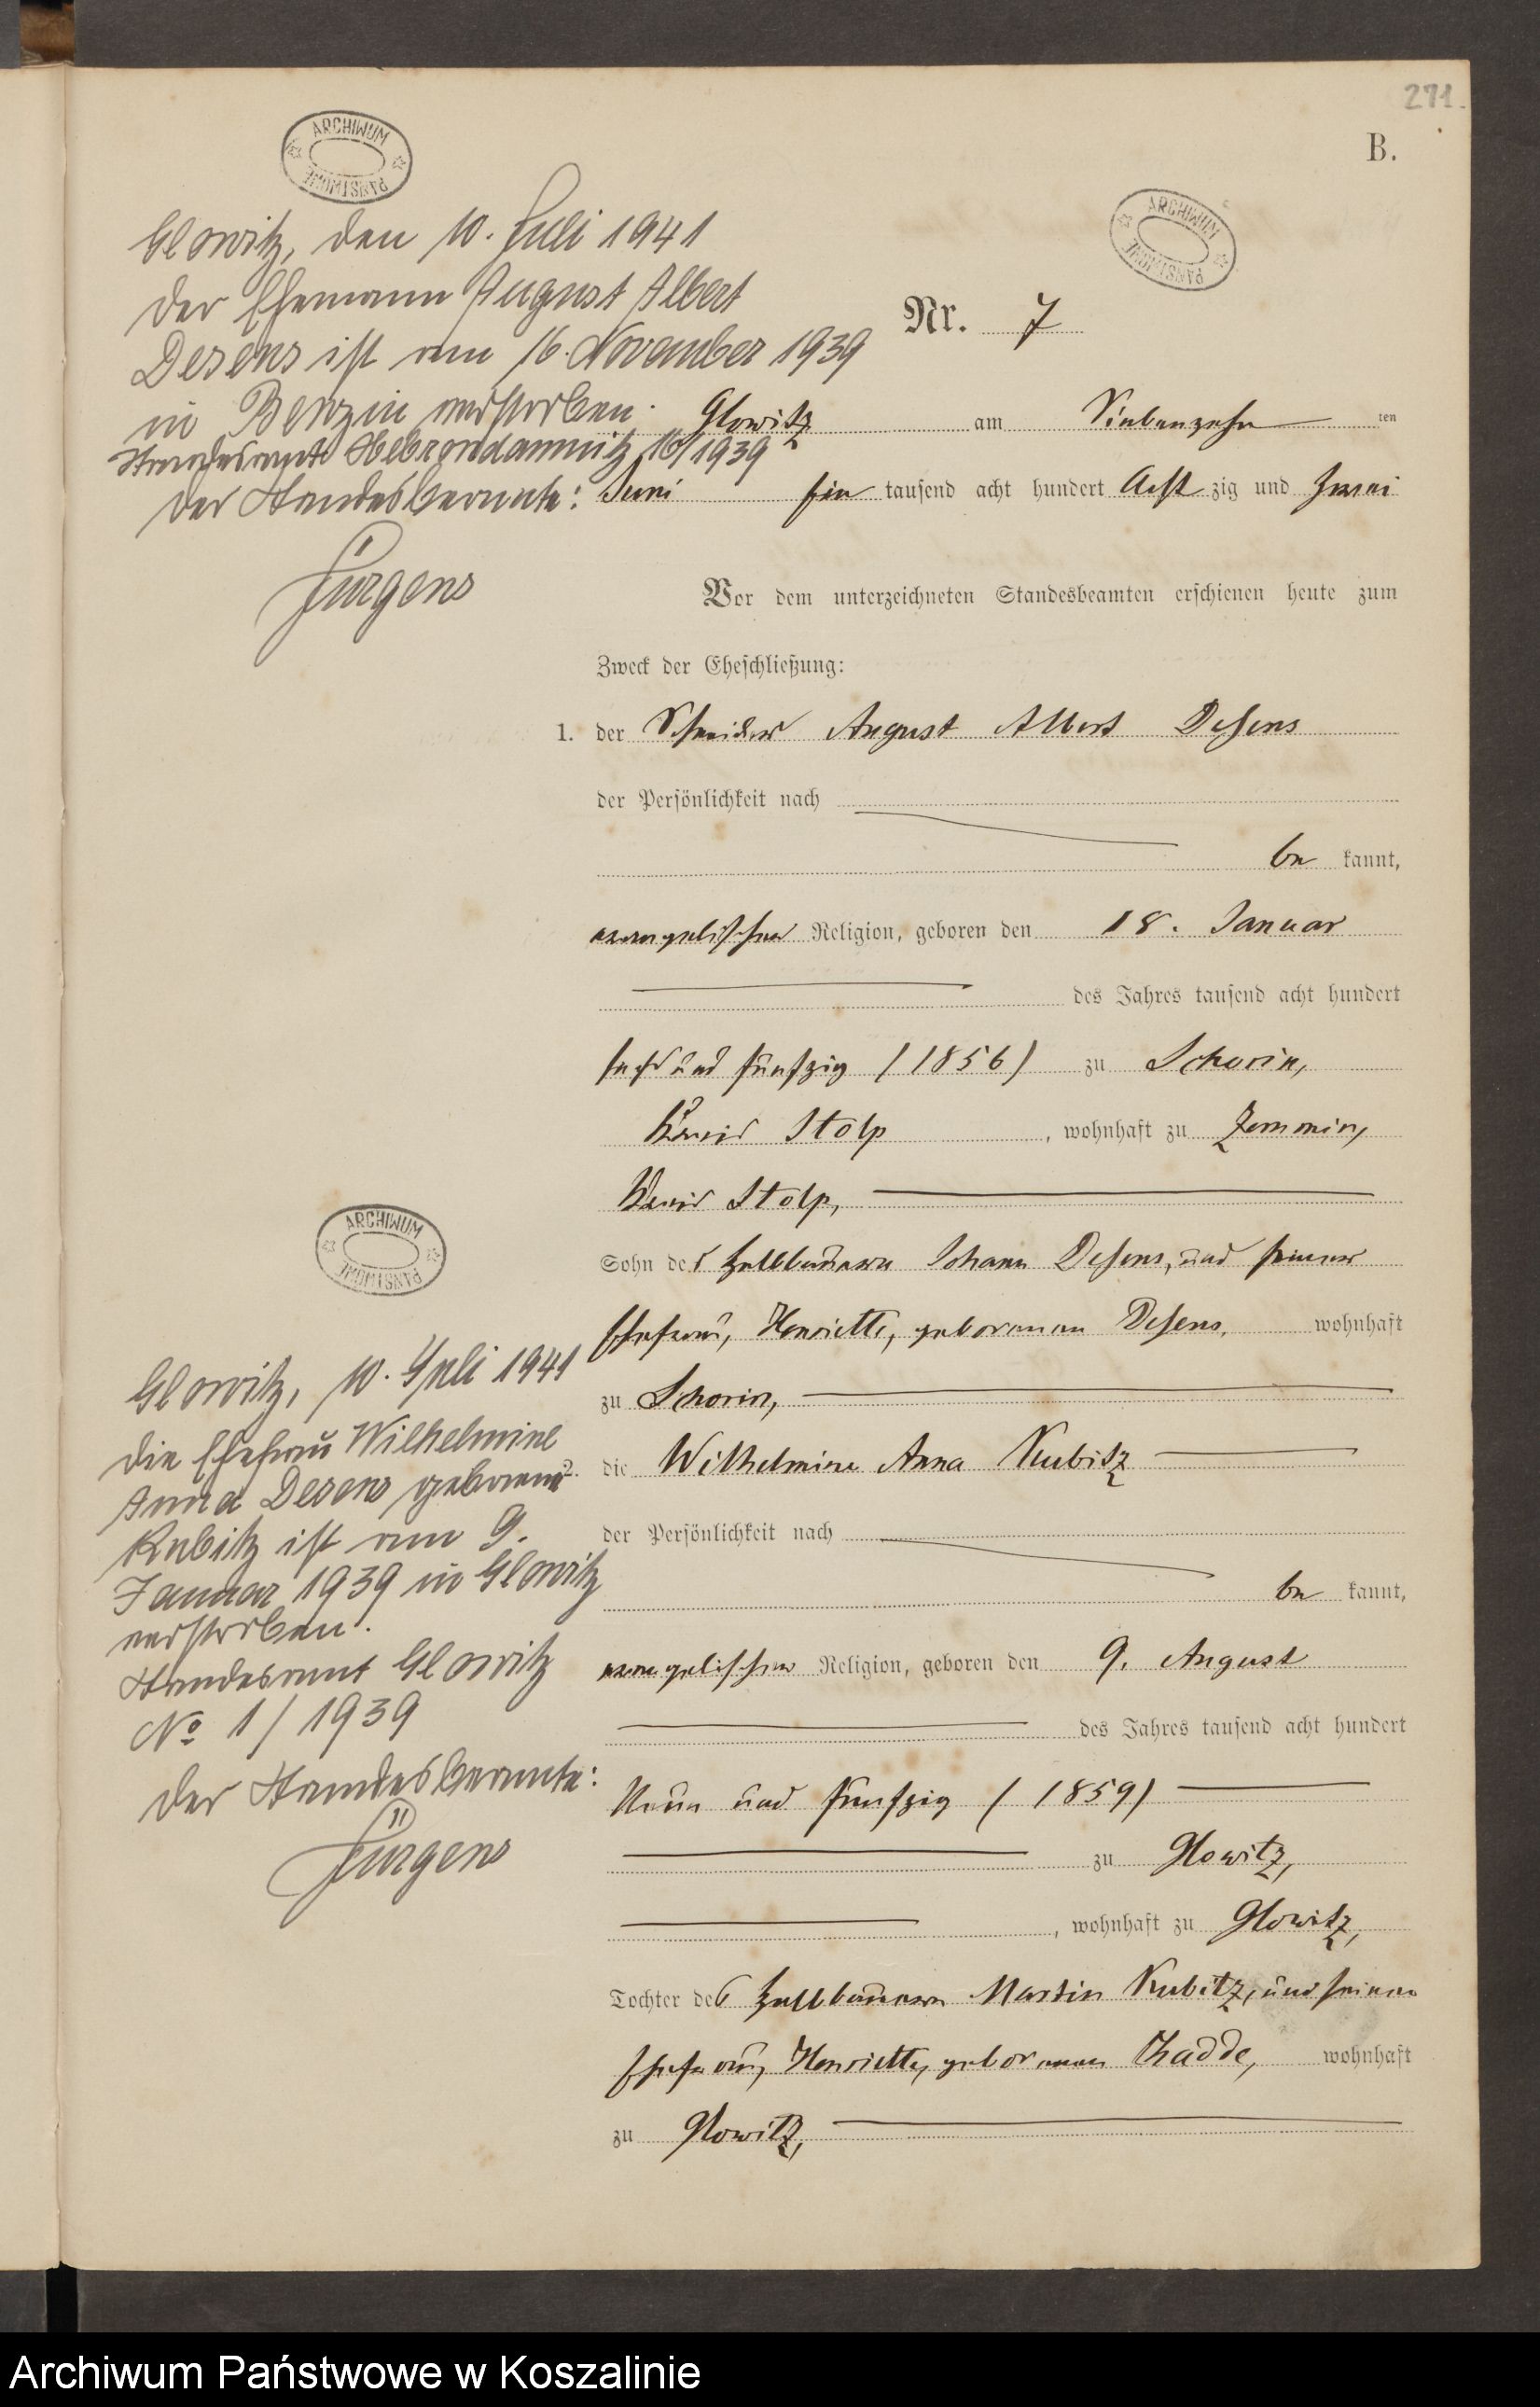 271.
B.
ARCHIWUM PAŃSTWOWE
ARCHIWUM PAŃSTWOWE
Glowitz, den 10. Juli 1941
Der Ehemann August Albert
Desens ist am 16. November 1939
in Benzin verstorben.
Standesamt Hebrondamnitz 16/1939
Der Standesbeamte:
Jürgens
Nr. 7
Glowitz am Siebenzehn ten
Juni ein tausend acht hundert Acht zig und zwei
Vor dem unterzeichneten Standesbeamten erschienen heute zum
Zweck der Eheschließung:
1. der Schneider August Albert Desens
der Persönlichkeit nach
be kannt,
evangelischer Religion, geboren den 18. Januar
des Jahres tausend acht hundert
sechs und fünfzig (1856) zu Schorin,
Kreis Stolp, wohnhaft zu Zemmin,
Kreis Stolp,
Sohn des Halbbauern Johann Desens, und seiner
Ehefrau, Henriette, geborenen Desens, wohnhaft
zu Schorin,
2. die Wilhelmine Anna Kubitz
der Persönlichkeit nach
be kannt,
evangelischer Religion, geboren den 9. August
des Jahres tausend acht hundert
Neun und Fünfzig (1859)
zu Glowitz,
, wohnhaft zu Glowitz,
Tochter des Halbbauern Martin Kubitz, und seiner
Ehefrau, Henriette, geborenen Zadde, wohnhaft
zu Glowitz,
ARCHIWUM PAŃSTWOWE
Glowitz, 10. Juli 1941
Die Ehefrau Wilhelmine
Anna Desens geborene
Kubitz ist am 9.
Januar 1939 in Glowitz
verstorben.
Standesamt Glowitz
No 1/1939
Der Standesbeamte:
Jürgens
Archiwum Państwowe w Koszalinie